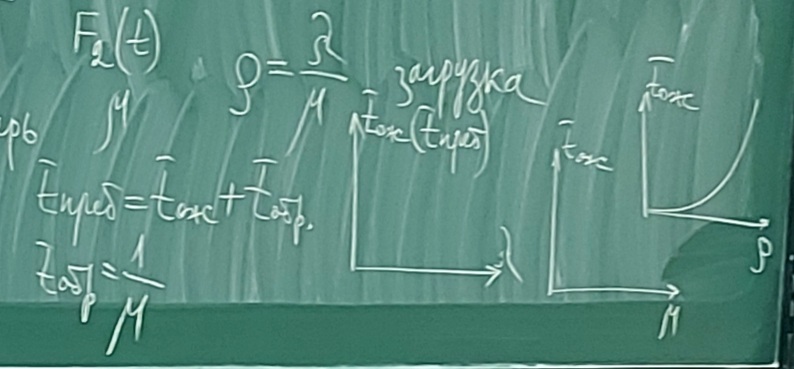 F₂(t)
μ
ρ = λ/μ загрузка
t̄преб = t̄ож + t̄обр.
t̄обр = 1/μ
t̄ож (t̄преб)
λ
t̄ож
μ
t̄ож
ρ